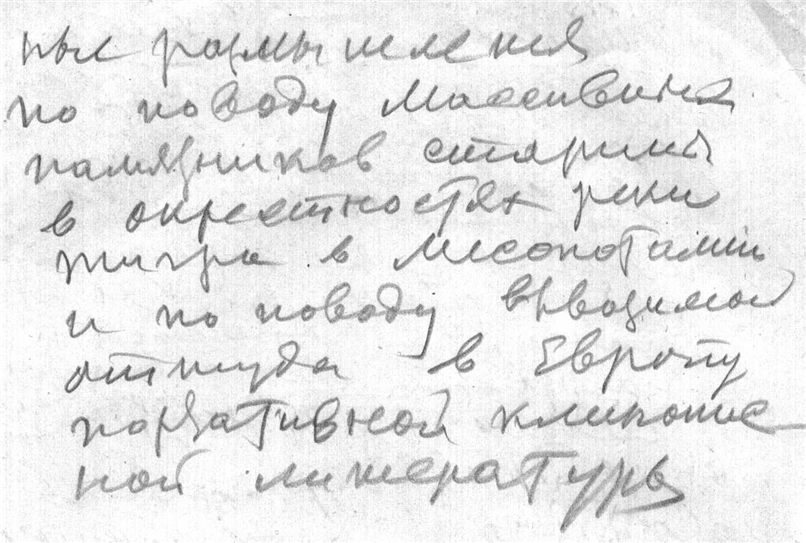 ные размышления
по поводу массивных
памятников старины
в окрестностях реки
Тигра в Месопотамии
и по поводу вывозимой
оттуда в Европу
портативной клинопис
ной литературы